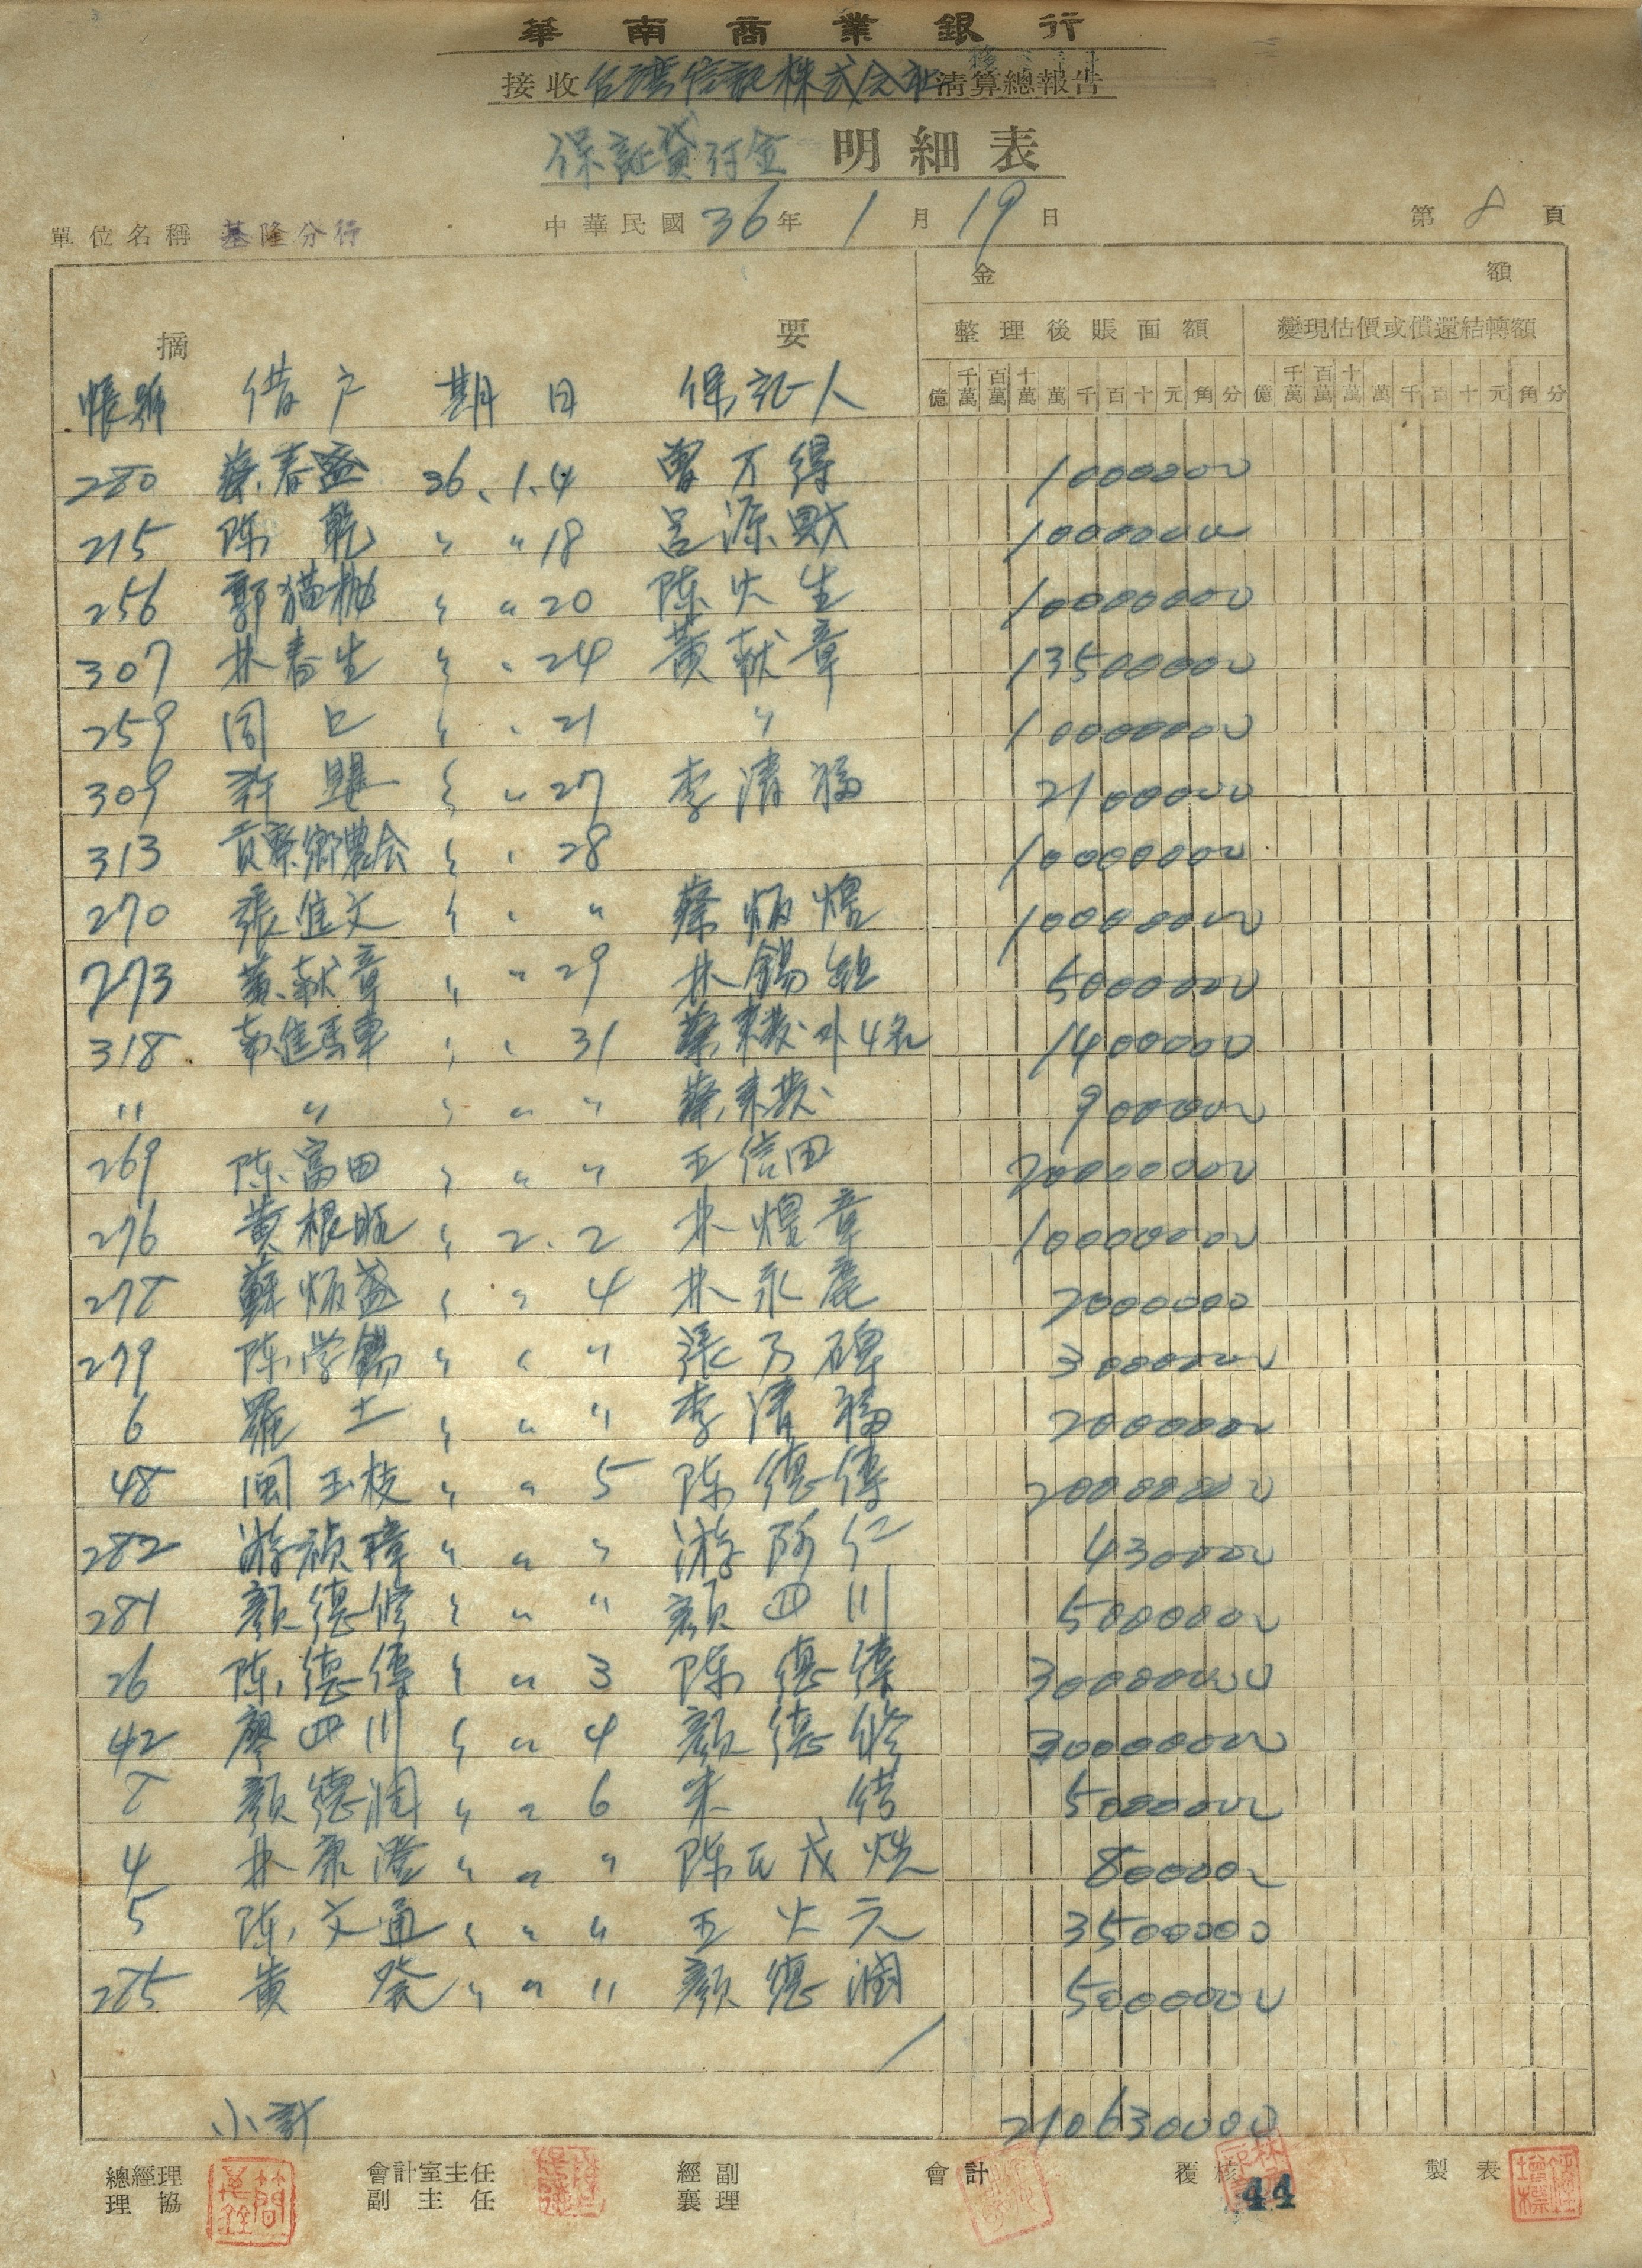 華南商業銀行
接收台灣信託株式会社清算總報告
保証貸付金 明細表
單位名稱 基隆分行 中華民國36年1月19日 第8頁
金額
摘要 整理後賬面額 變現估價或償還結轉額
億 千萬 百萬 十萬 萬 千 百 十 元 角 分 億 千萬 百萬 十萬 萬 千 百 十 元 角 分
帳號 借户 期日 保証人
280 蔡春盛 36、1、4 曾万得 1000000
215 陈乾 〃 〃 18 呂源財 10000000
256 郭猫 〃 〃 20 陈火生 10000000
307 林春生 〃 〃 24 黄献章 13500000
259 同上 〃 〃 21 〃 10000000
309 許 〃 〃 27 李清福 2100000
313 貢寮鄉農会 〃 〃 28 10000000
270 張進文 〃 〃 〃 蔡炳煌 10000000
273 黄献章 〃 〃 29 林錫 5000000
318 南進馬車 〃 〃 31 蔡来 外4名 1400000
〃 〃 〃 〃 〃 蔡来 900000
269 陈富田 〃 〃 〃 王信田 20000000
276 黄根旺 〃 2.2 林煜章 10000000
278 蘇炳益 〃 〃 4 林永 2000000
279 陈学錫 〃 〃 〃 張乃碑 3000000
6 羅土 〃 〃 〃 李清福 2000000
48 闽玉枝 〃 〃 5 陈德傳 20000000
282 游禎璋 〃 〃 〃 游阿仁 430000
281 顏德修 〃 〃 〃 顏四川 5000000
26 陈德傳 〃 〃 3 陈德 30000000
42 廖四川 〃 〃 4 顏德修 30000000
8 顏德潤 〃 〃 6 朱 5000000
4 林康澄 〃 〃 〃 陈氏茂 800000
5 陈文通 〃 〃 〃 王火元 3500000
285 黄癸 〃 〃 11 顏德潤 5000000
小計 210630000
總經理 協理 會計室主任 副主任 經副襄理 會計 覆核 製表
44